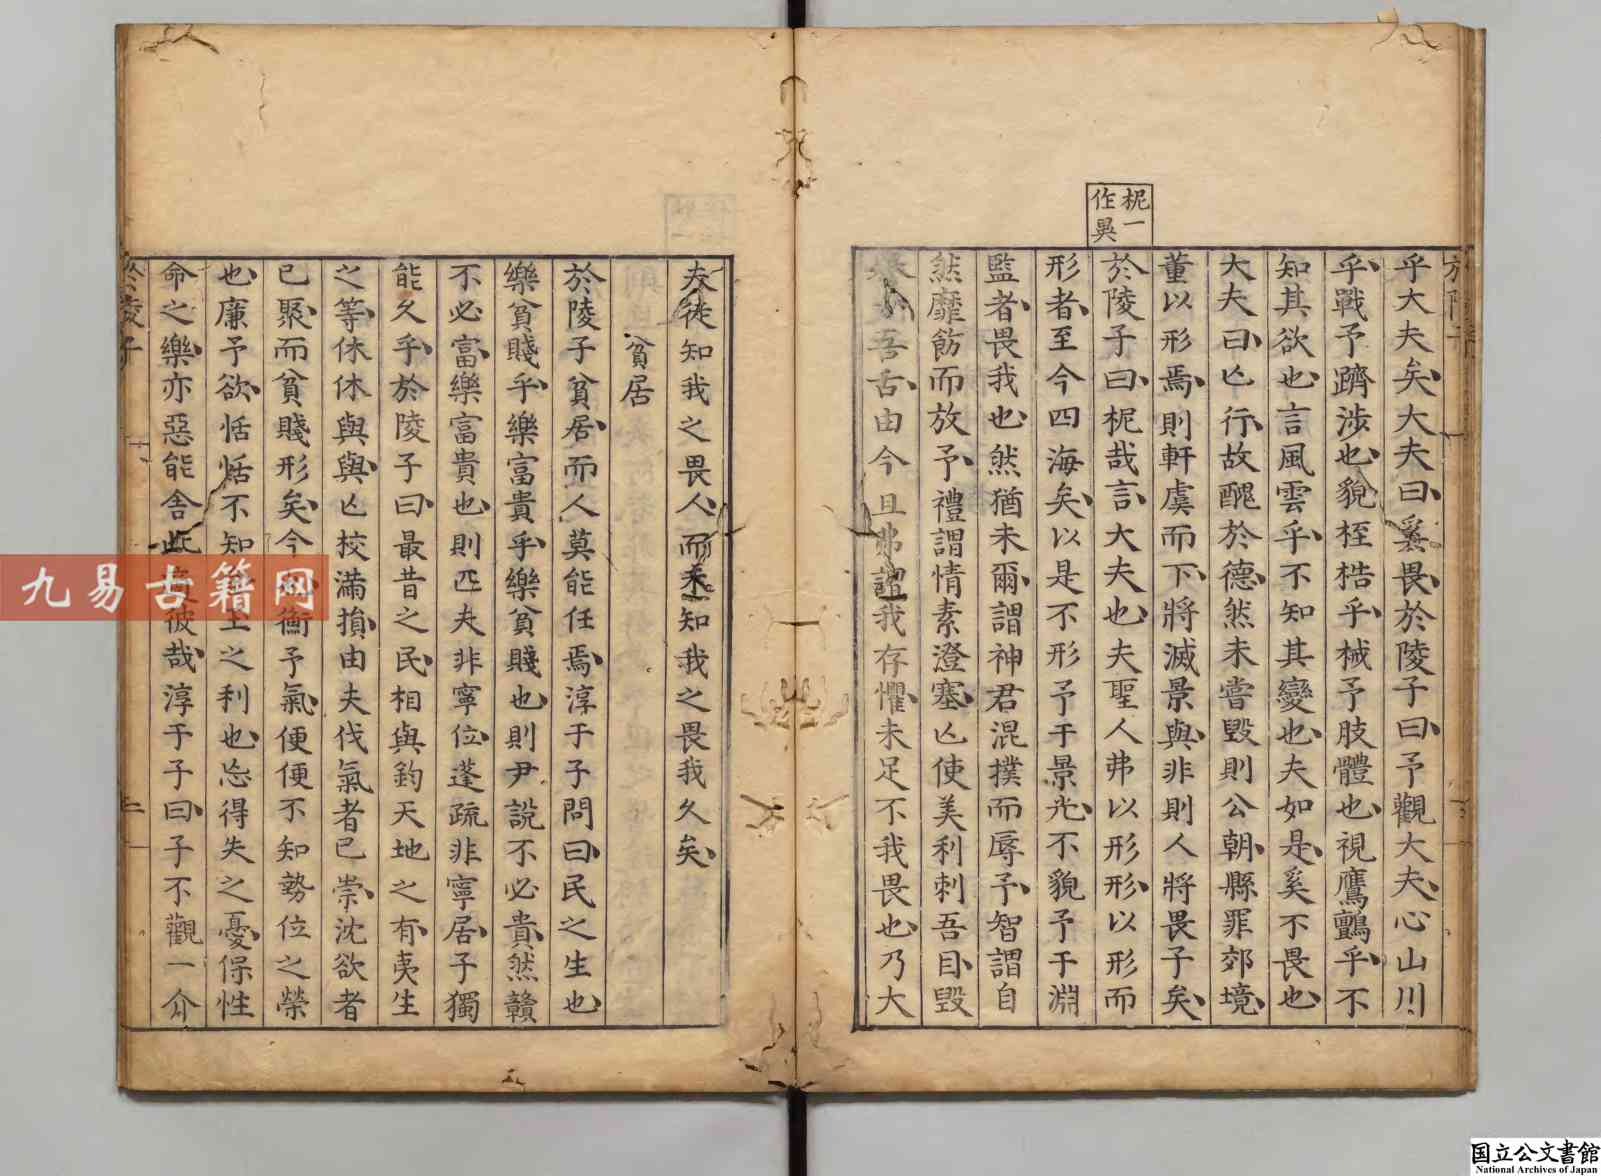 柅一
作臬
乎大夫矣大夫曰奚畏於陵子曰予觀大夫心山川
乎戰予躋涉也貌桎梏乎械予肢體也視鷹鸇乎不
知其欲也言風雲乎不知其變也夫如是奚不畏也
大夫曰亾行故醜於德然未嘗毀則公朝縣罪郊境
董以形焉則軒虞而下將滅景與非則人將畏子矣
於陵子曰柅哉言大夫也夫聖人弗以形形以形而
形者至今四海矣以是不形予于景光不貌予于淵
監者畏我也然猶未爾謂神君混撲而辱予智謂自
然靡飭而放予禮謂情素澄塞亾使美利刺吾目毀
吾舌由今且弗謂我存懼未足不我畏也乃大
夫徒知我之畏人而未知我之畏我久矣
貧居
於陵子貧居而人莫能任焉淳于子問曰民之生也
樂貧賤乎樂富貴乎樂貧賤也則尹說不必貴然贛
不必富樂富貴也則匹夫非寧位蓬疏非寧居子獨
能久乎於陵子曰最昔之民相與鈞天地之有夷生
之等休休與與亾校滿損由夫伐氣者已崇沈欲者
已聚而貧賤形矣今衡予氣便便不知勢位之榮
也廉予欲恬恬不知之利也忘得失之憂保性
命之樂亦惡能舍此彼哉淳于子曰子不觀一介
於陵子
二
九易古籍网
国立公文書館
National Archives of Japan